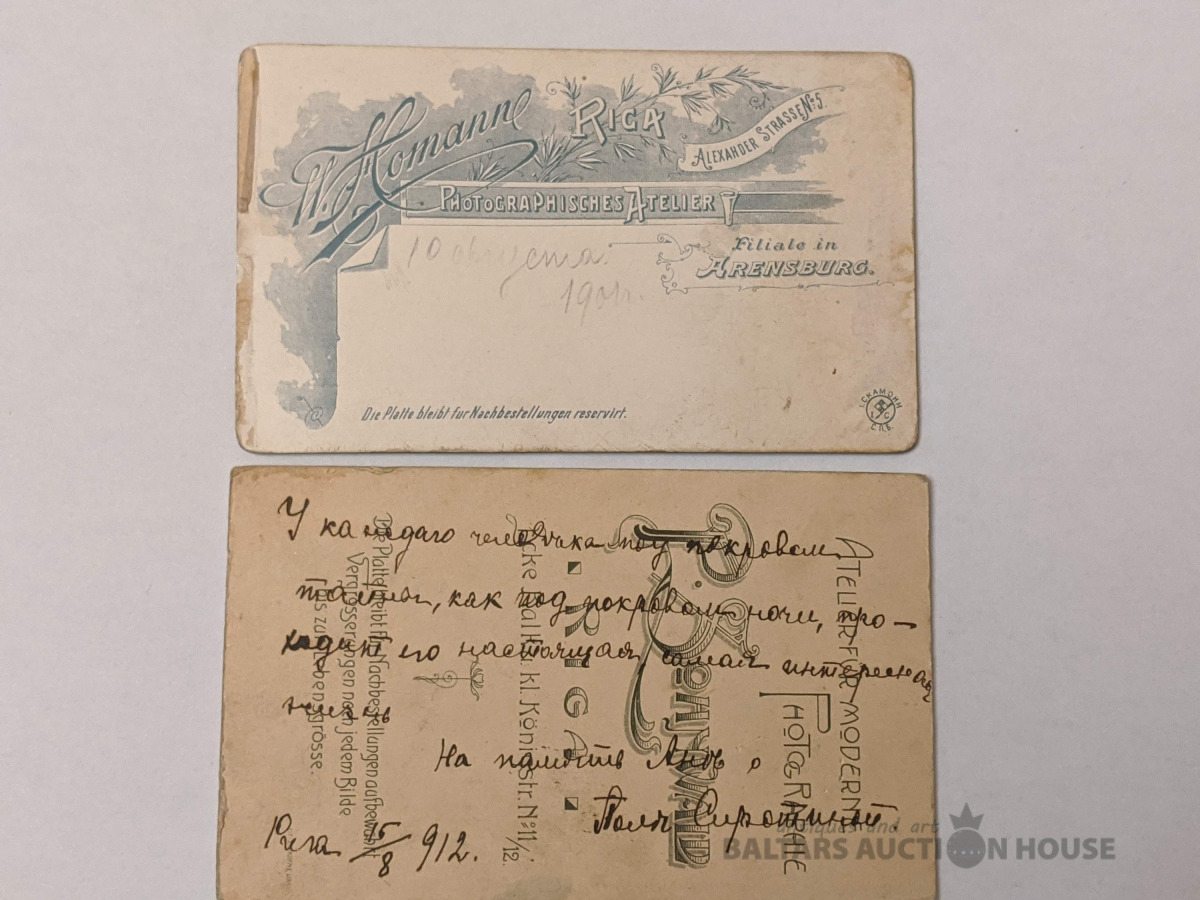 W. Homann
RIGA
ALEXANDER STRASSE No 5.
PHOTOGRAPHISCHES ATELIER
Filiale in
ARENSBURG.
10 августа
1901 г.
Die Platte bleibt für Nachbestellungen reservirt.
С.П.Б.
У каждаго человѣка под покровом
тайны, как под покровом ночи, про-
ходит его настоящая самая интересная
жизнь
На память Анѣ о
Полѣ Сиротиной
Рига 15/8 912.
ATELIER FÜR MODERNE
PHOTOGRAPHIE
RIGA
Ecke Kalk u. kl. Königstr. No 11/12.
Die Platte bleibt für Nachbestellungen aufbewahrt
Vergrösserungen nach jedem Bilde
bis zur Lebensgrösse.
antiques and art
BALTARS AUCTION HOUSE